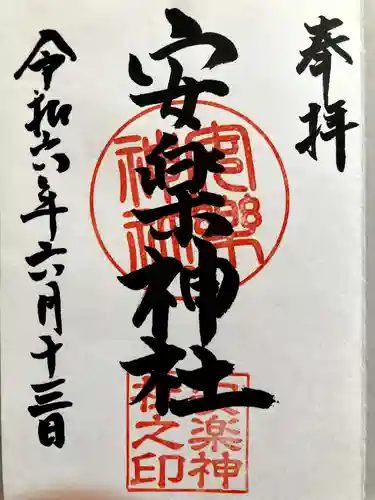 奉拝
安楽神社
令和六年六月十三日
安楽神
社之印